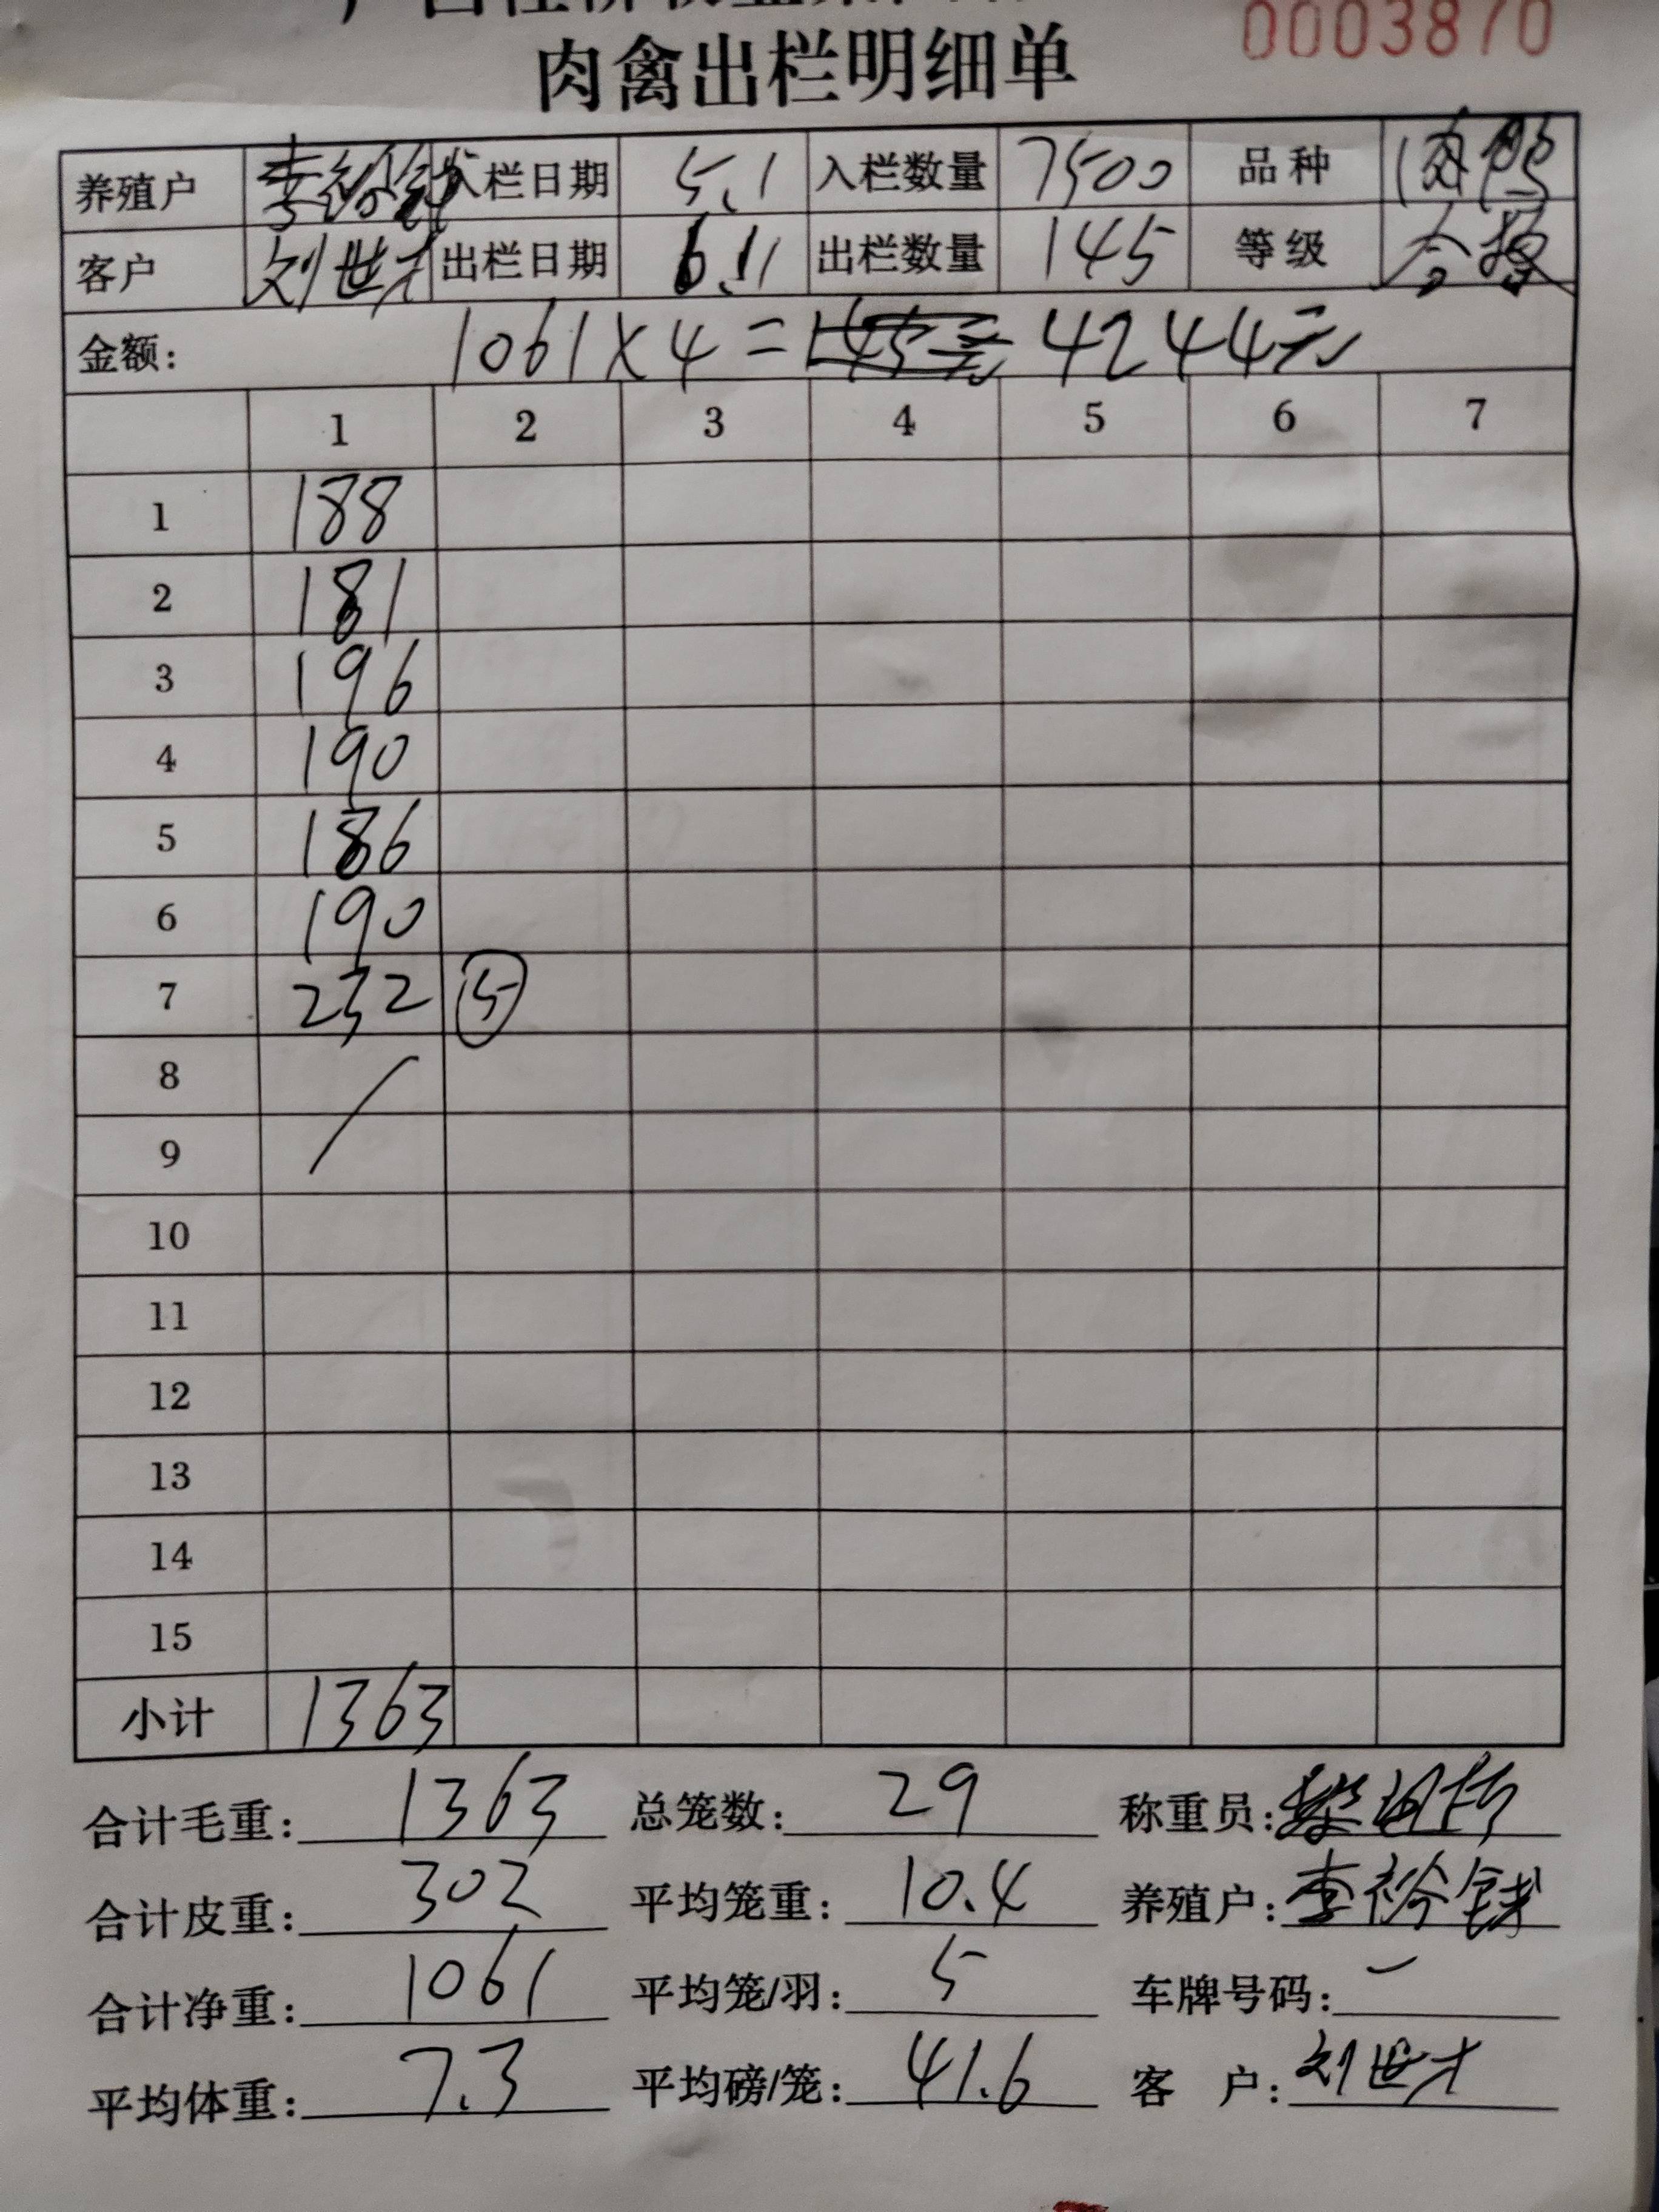 0003870
肉禽出栏明细单
养殖户 李裕钱 入栏日期 5.1 入栏数量 7500 品种
客户 刘世才 出栏日期 6.11 出栏数量 145 等级 合格
金额: 1061×4= 4244元
1 2 3 4 5 6 7
1 188
2 181
3 196
4 190
5 186
6 190
7 232 5
8
9
10
11
12
13
14
15
小计 1363
合计毛重: 1363 总笼数: 29 称重员:
合计皮重: 302 平均笼重: 10.4 养殖户: 李裕钱
合计净重: 1061 平均笼/羽: 5 车牌号码: 一
平均体重: 7.3 平均磅/笼: 41.6 客户: 刘世才